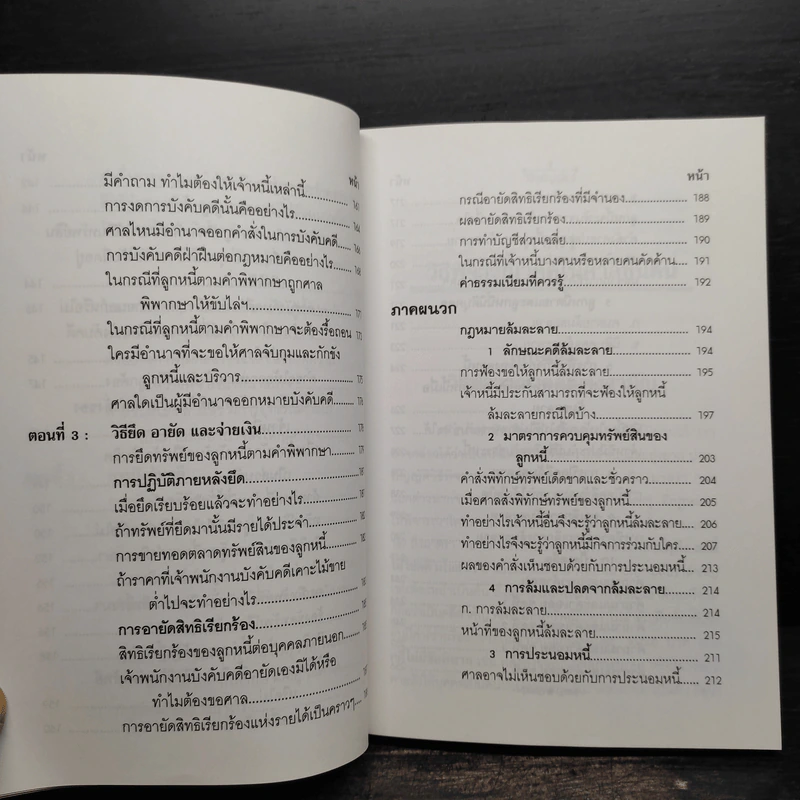 หน้า
มีคำถาม ทำไมต้องให้เจ้าหนี้เหล่านี้
การงดการบังคับคดีนั้นคืออย่างไร
ศาลไหนมีอำนาจออกคำสั่งในการบังคับคดี
การบังคับคดีฝ่าฝืนต่อกฎหมายคืออย่างไร
ในกรณีที่ลูกหนี้ตามคำพิพากษาถูกศาล
พิพากษาให้ขับไล่ฯ
ในกรณีที่ลูกหนี้ตามคำพิพากษาจะต้องรื้อถอน
ใครมีอำนาจที่จะขอให้ศาลจับกุมและกักขัง
ลูกหนี้และบริวาร
ศาลใดเป็นผู้มีอำนาจออกหมายบังคับคดี
ตอนที่ 3 : วิธียึด อายัด และจ่ายเงิน
การยึดทรัพย์ของลูกหนี้ตามคำพิพากษา
การปฏิบัติภายหลังยึด
เมื่อยึดเรียบร้อยแล้วจะทำอย่างไร
ถ้าทรัพย์ที่ยึดมานั้นมีรายได้ประจำ
การขายทอดตลาดทรัพย์สินของลูกหนี้
ถ้าราคาที่เจ้าพนักงานบังคับคดีเคาะไม้ขาย
ต่ำไปจะทำอย่างไร
การอายัดสิทธิเรียกร้อง
สิทธิเรียกร้องของลูกหนี้ต่อบุคคลภายนอก
เจ้าพนักงานบังคับคดีอายัดเองมิได้หรือ
ทำไมต้องขอศาล
การอายัดสิทธิเรียกร้องแห่งรายได้เป็นคราวๆ
หน้า
กรณีอายัดสิทธิเรียกร้องที่มีจำนอง 188
ผลอายัดสิทธิเรียกร้อง 189
การทำบัญชีส่วนเฉลี่ย 190
ในกรณีที่เจ้าหนี้บางคนหรือหลายคนคัดค้าน 191
ค่าธรรมเนียมที่ควรรู้ 192
ภาคผนวก
กฎหมายล้มละลาย 194
1 ลักษณะคดีล้มละลาย 194
การฟ้องขอให้ลูกหนี้ล้มละลาย 195
เจ้าหนี้มีประกันสามารถที่จะฟ้องให้ลูกหนี้
ล้มละลายกรณีใดบ้าง 197
2 มาตราการควบคุมทรัพย์สินของ
ลูกหนี้ 203
คำสั่งพิทักษ์ทรัพย์เด็ดขาดและชั่วคราว 204
เมื่อศาลสั่งพิทักษ์ทรัพย์ของลูกหนี้ 205
ทำอย่างไรเจ้าหนี้อื่นจึงจะรู้ว่าลูกหนี้ล้มละลาย 206
ทำอย่างไรจึงจะรู้ว่าลูกหนี้มีกิจการร่วมกับใคร 207
ผลของคำสั่งเห็นชอบด้วยกับการประนอมหนี้ 213
4 การล้มและปลดจากล้มละลาย 214
ก. การล้มละลาย 214
หน้าที่ของลูกหนี้ล้มละลาย 215
3 การประนอมหนี้ 211
ศาลอาจไม่เห็นชอบด้วยกับการประนอมหนี้ 212